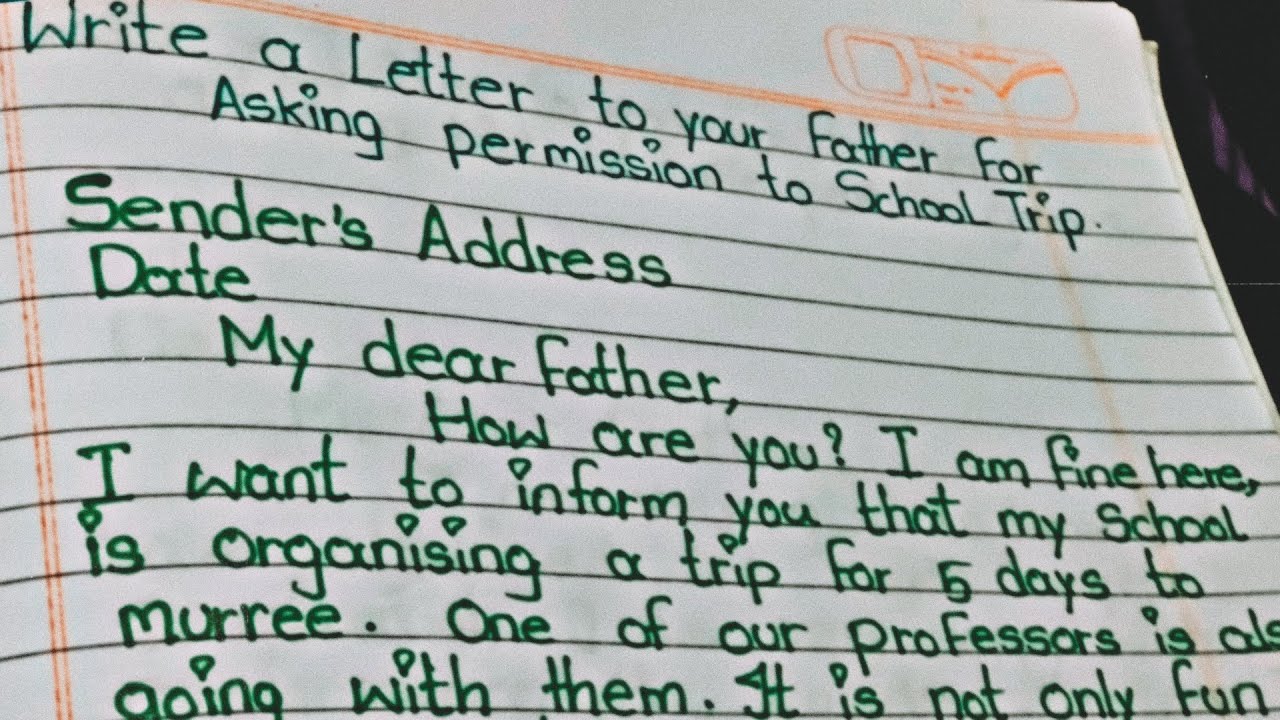 Write a Letter to your Father For
Asking permission to School Trip.
Sender's Address
Date
My dear father,
How are you? I am fine here,
I want to inform you that my School
is organising a trip for 5 days to
murree. One of our professors is als
going with them. It is not only fun